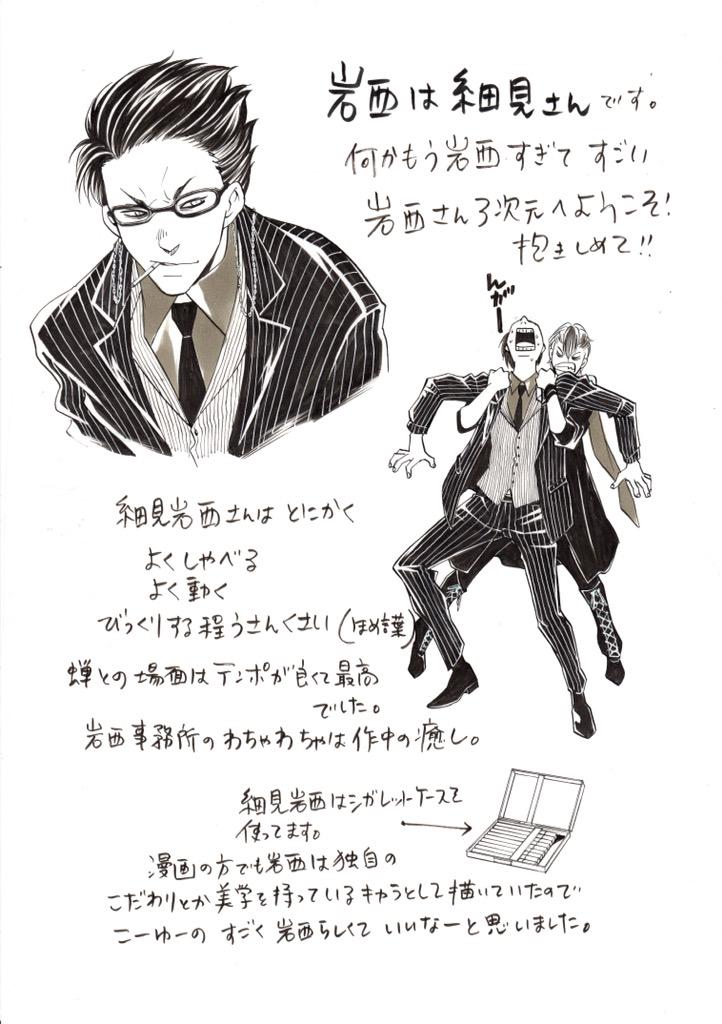 岩西は細見さんです。
何かもう岩西すぎてすごい
岩西さん3次元へようこそ!
抱きしめて!!
んがー
細見岩西さんはとにかく
よくしゃべる
よく動く
びっくりする程うさんくさい(ほめ言葉)
蝉との場面はテンポが良くて最高
でした。
岩西事務所のわちゃわちゃは作中の癒し。
細見岩西はシガレットケースて
使ってます。
漫画の方でも岩西は独自の
こだわりとか美学を持っているキャラとして描いていたので
こーゆーのすごく岩西らしくていいなーと思いました。